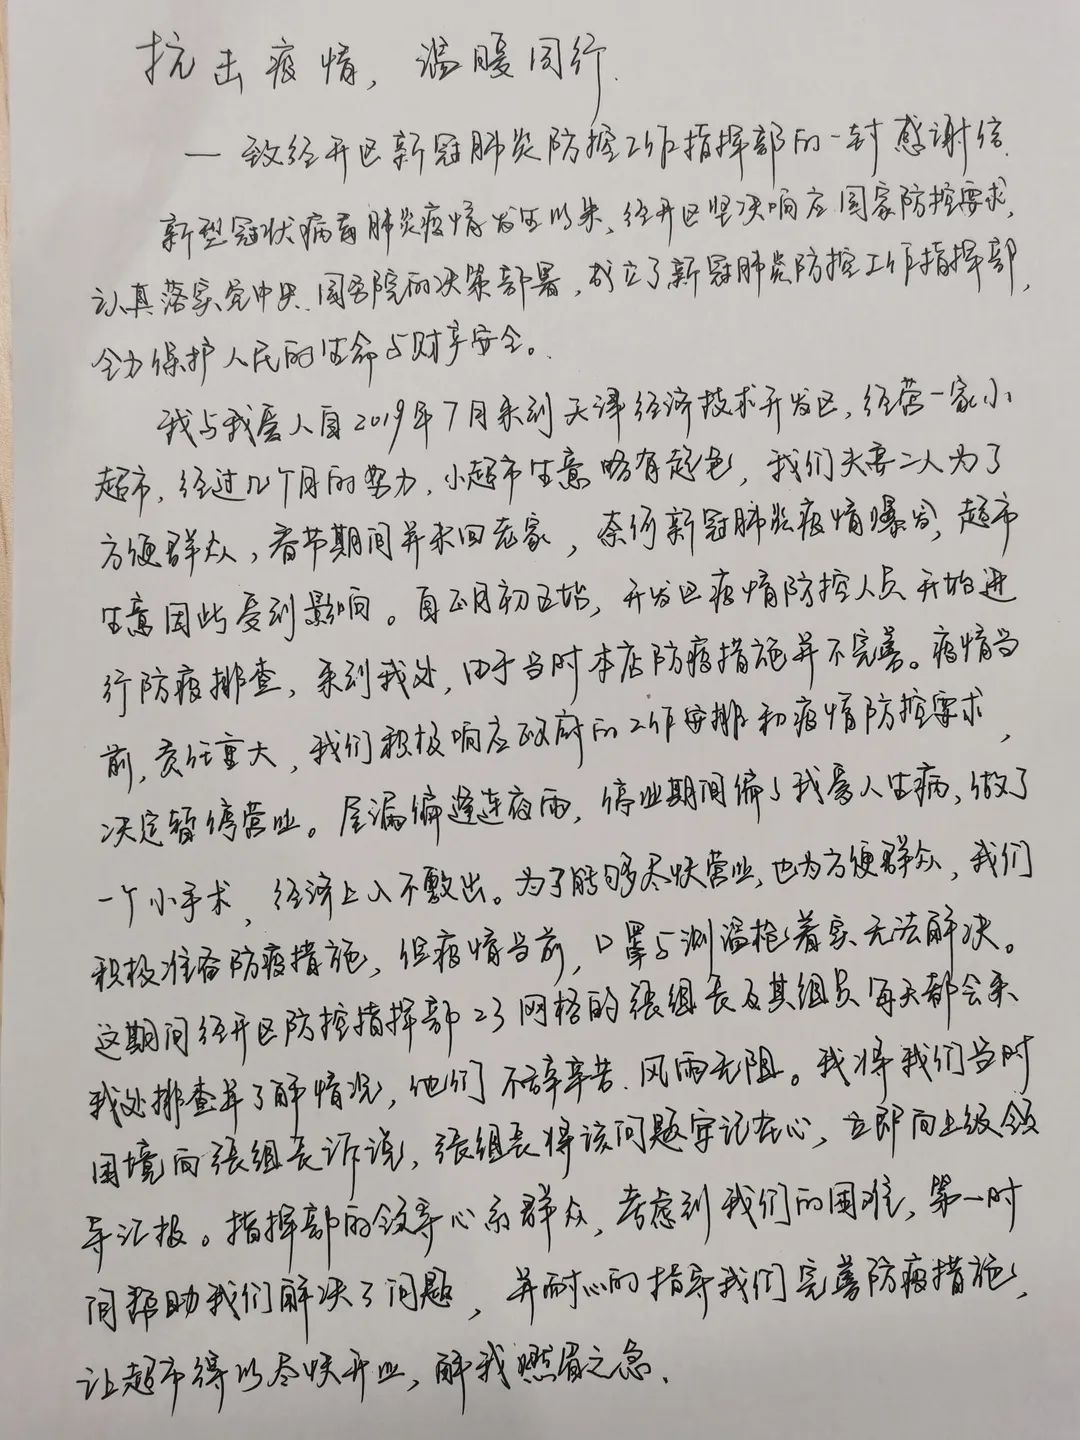 抗击疫情，温暖同行.
— 致经开区新冠肺炎防控工作指挥部的一封感谢信.
新型冠状病毒肺炎疫情发生以来，经开区坚决响应国家防控要求，
认真落实党中央、国务院的决策部署，成立了新冠肺炎防控工作指挥部，
全力保护人民的生命与财产安全。
我与我爱人自2019年7月来到天津经济技术开发区，经营一家小
超市，经过几个月的努力，小超市生意略有起色，我们夫妻二人为了
方便群众，春节期间并未回老家，奈何新冠肺炎疫情爆发，超市
生意因此受到影响。自正月初五始，开发区疫情防控人员开始进
行防疫排查，来到我处，由于当时本店防疫措施并不完善。疫情当
前，责任重大，我们积极响应政府的工作安排和疫情防控要求，
决定暂停营业。屋漏偏逢连夜雨，停业期间偏偏我爱人生病，做了
一个小手术，经济上入不敷出。为了能够尽快营业，也为方便群众，我们
积极准备防疫措施，但疫情当前，口罩与测温枪着实无法解决。
这期间经开区防控指挥部23网格的张组长及其组员每天都会来
我处排查并了解情况，他们不辞辛苦、风雨无阻。我将我们当时
困境向张组长诉说，张组长将该问题牢记在心，立即向上级领
导汇报。指挥部的领导心系群众，考虑到我们的困难，第一时
间帮助我们解决了问题，并耐心的指导我们完善防疫措施，
让超市得以尽快开业，解我燃眉之急.